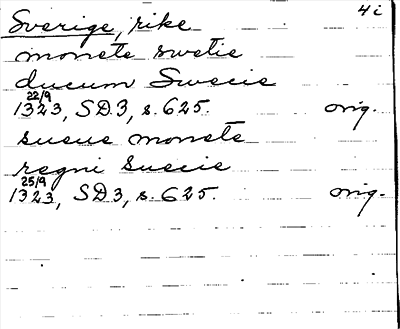 4i
Sverige, rike
monete swetie
ducum Swecie
22/9
1323, SD3, s. 625. orig.
sueue monete
regni Suecie
25/9
1323, SD3, s. 625. orig.